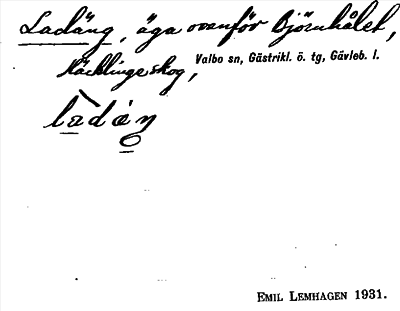 Ladäng, äga ovanför Björnhålet,
Häcklinge skog, Valbo sn, Gästrikl. ö. tg, Gävleb. l.
Emil Lemhagen 1931.